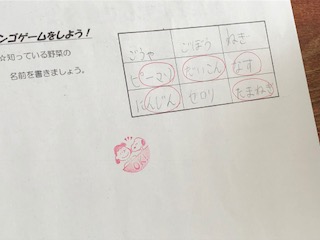 ンゴゲームをしよう！
☆知っている野菜の
名前を書きましょう。
ごうや ごぼう ねぎ
ピーマン だいこん なす
にんじん セロリ たまねぎ